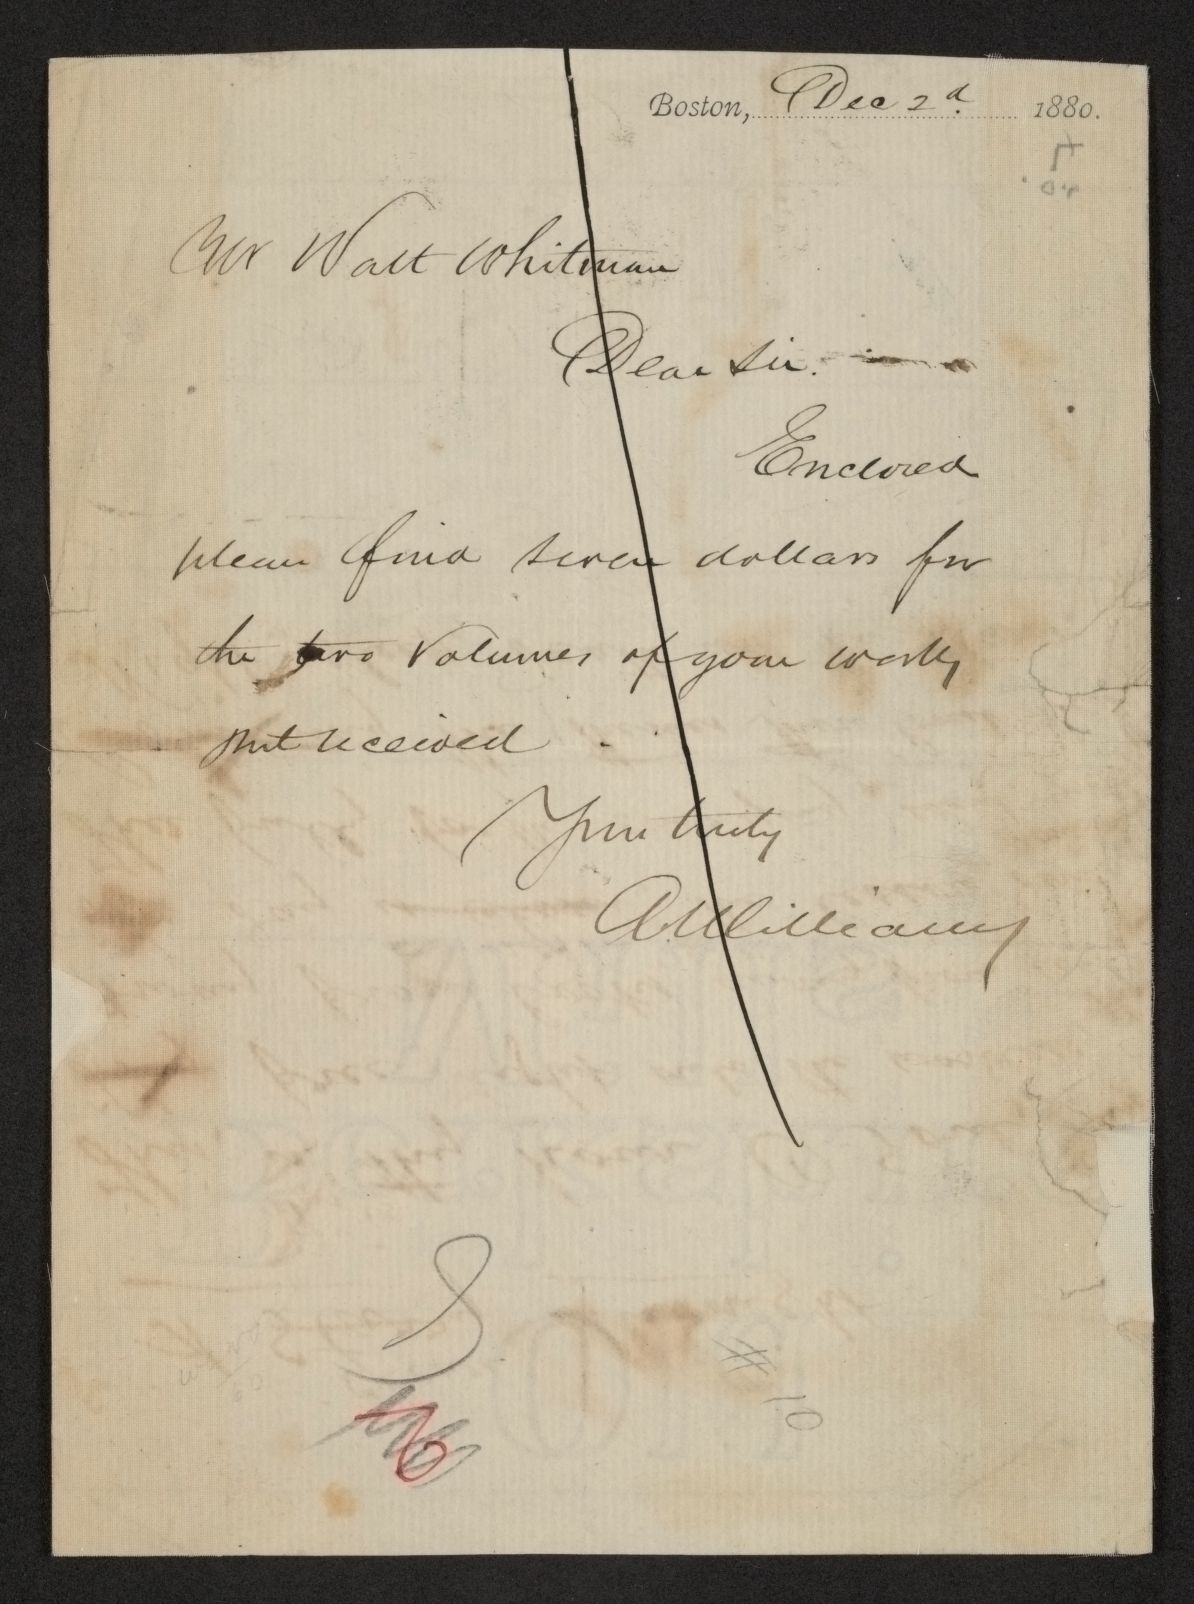 Boston, Dec 2d. 1880.
Mr Walt Whitman
Dear Sir.
Enclosed
please find seven dollars for
the two volumes of your works
just received
Yours truly
A Williams
# 10